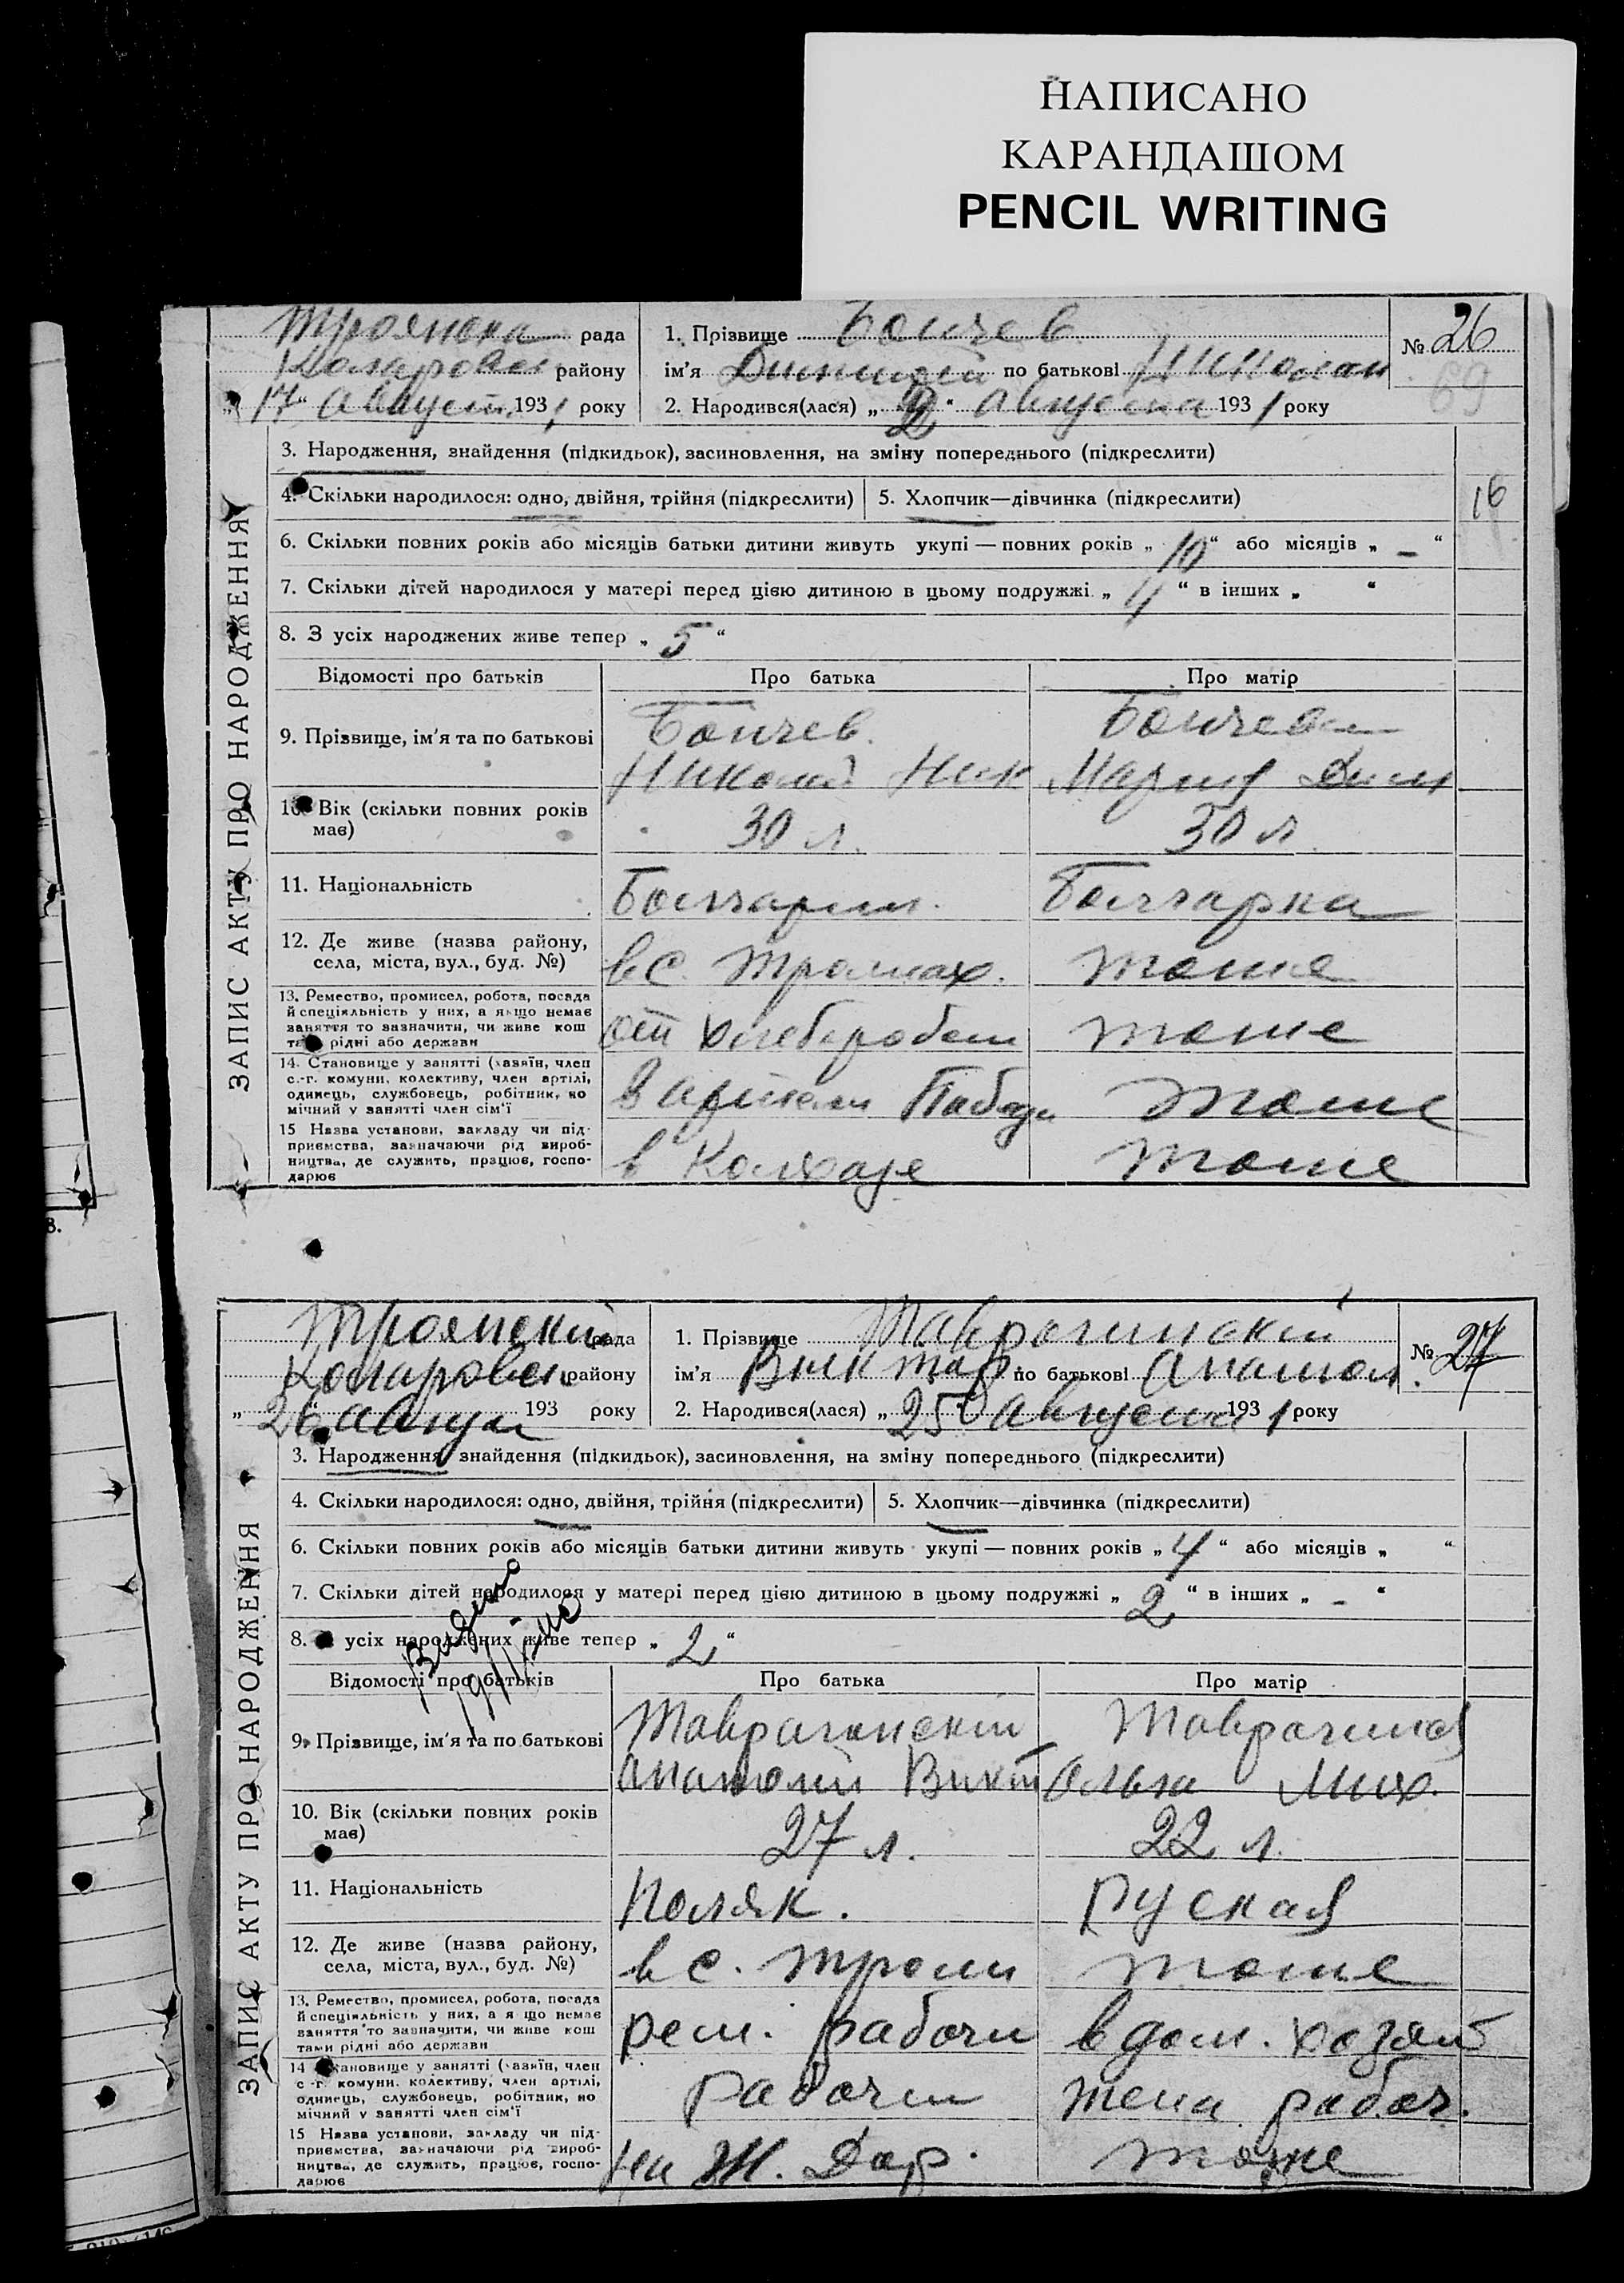 НАПИСАНО
КАРАНДАШОМ
PENCIL WRITING
Троянска рада
Коларовск району
„17“ Август 1931 року
1. Прізвище Бончев
ім'я Дмитрий по батькові Николаи
2. Народився(лася) „2“ Августа 1931 року
№ 26
69
ЗАПИС АКТУ ПРО НАРОДЖЕННЯ
3. Народження, знайдення (підкидьок), засиновлення, на зміну попереднього (підкреслити)
4. Скільки народилося: одно, двійня, трійня (підкреслити)
5. Хлопчик—дівчинка (підкреслити)
16
6. Скільки повних років або місяців батьки дитини живуть укупі — повних років „10“ або місяців „—“
7. Скільки дітей народилося у матері перед цією дитиною в цьому подружжі „4“ в інших „ “
8. З усіх народжених живе тепер „5“
Відомості про батьків
Про батька
Про матір
9. Прізвище, ім'я та по батькові
Бончев
Николай Ник
Бончева
Мария Дим
10. Вік (скільки повних років має)
30 л.
30 л.
11. Національність
Болгарин.
Болгарка
12. Де живе (назва району,
села, міста, вул., буд. №)
в с. Троянах.
тоже
13. Ремество, промисел, робота, посада
й спеціяльність у них, а якщо немає
заняття то зазначити, чи живе кош
та рідні або держави
хлебороб
тоже
14. Становище у занятті (хазяїн, член
с.-г. комуни, колективу, член артілі,
одинець, службовець, робітник, по
мічний у занятті член сім'ї
в артели Победа
тоже
15 Назва установи, закладу чи під-
приємства, зазначаючи рід вироб-
ництва, де служить, працює, госпо-
дарює
в Колхозе
тоже
Троянский рада
Коларовск району
„26“ Август 193 року
1. Прізвище
ім'я Виктор по батькові Анатол.
2. Народився(лася) „25“ Августа 1931 року
№ 27
ЗАПИС АКТУ ПРО НАРОДЖЕННЯ
3. Народження, знайдення (підкидьок), засиновлення, на зміну попереднього (підкреслити)
4. Скільки народилося: одно, двійня, трійня (підкреслити)
5. Хлопчик—дівчинка (підкреслити)
6. Скільки повних років або місяців батьки дитини живуть укупі — повних років „4“ або місяців „ “
7. Скільки дітей народилося у матері перед цією дитиною в цьому подружжі „2“ в інших „-“
8. З усіх народжених живе тепер „2“
Відомості про батьків
Про батька
Про матір
9. Прізвище, ім'я та по батькові
Анатолий Викт
Ольга Мих.
10. Вік (скільки повних років має)
27 л.
22 л.
11. Національність
поляк.
руская
12. Де живе (назва району,
села, міста, вул., буд. №)
в с. Трояни
тоже
13. Ремество, промисел, робота, посада
й спеціяльність у них, а якщо немає
заняття то зазначити, чи живе кош
тами рідні або держави
рем. рабочи
в дом. хозяй
14 Становище у занятті (хазяїн, член
с.-г. комуни, колективу, член артілі,
одинець, службовець, робітник, по
мічний у занятті член сім'ї
рабочи
жена рабоч.
15 Назва установи, закладу чи під-
приємства, зазначаючи рід вироб-
ництва, де служить, працює, госпо-
дарює
на Ж. Дор.
тоже